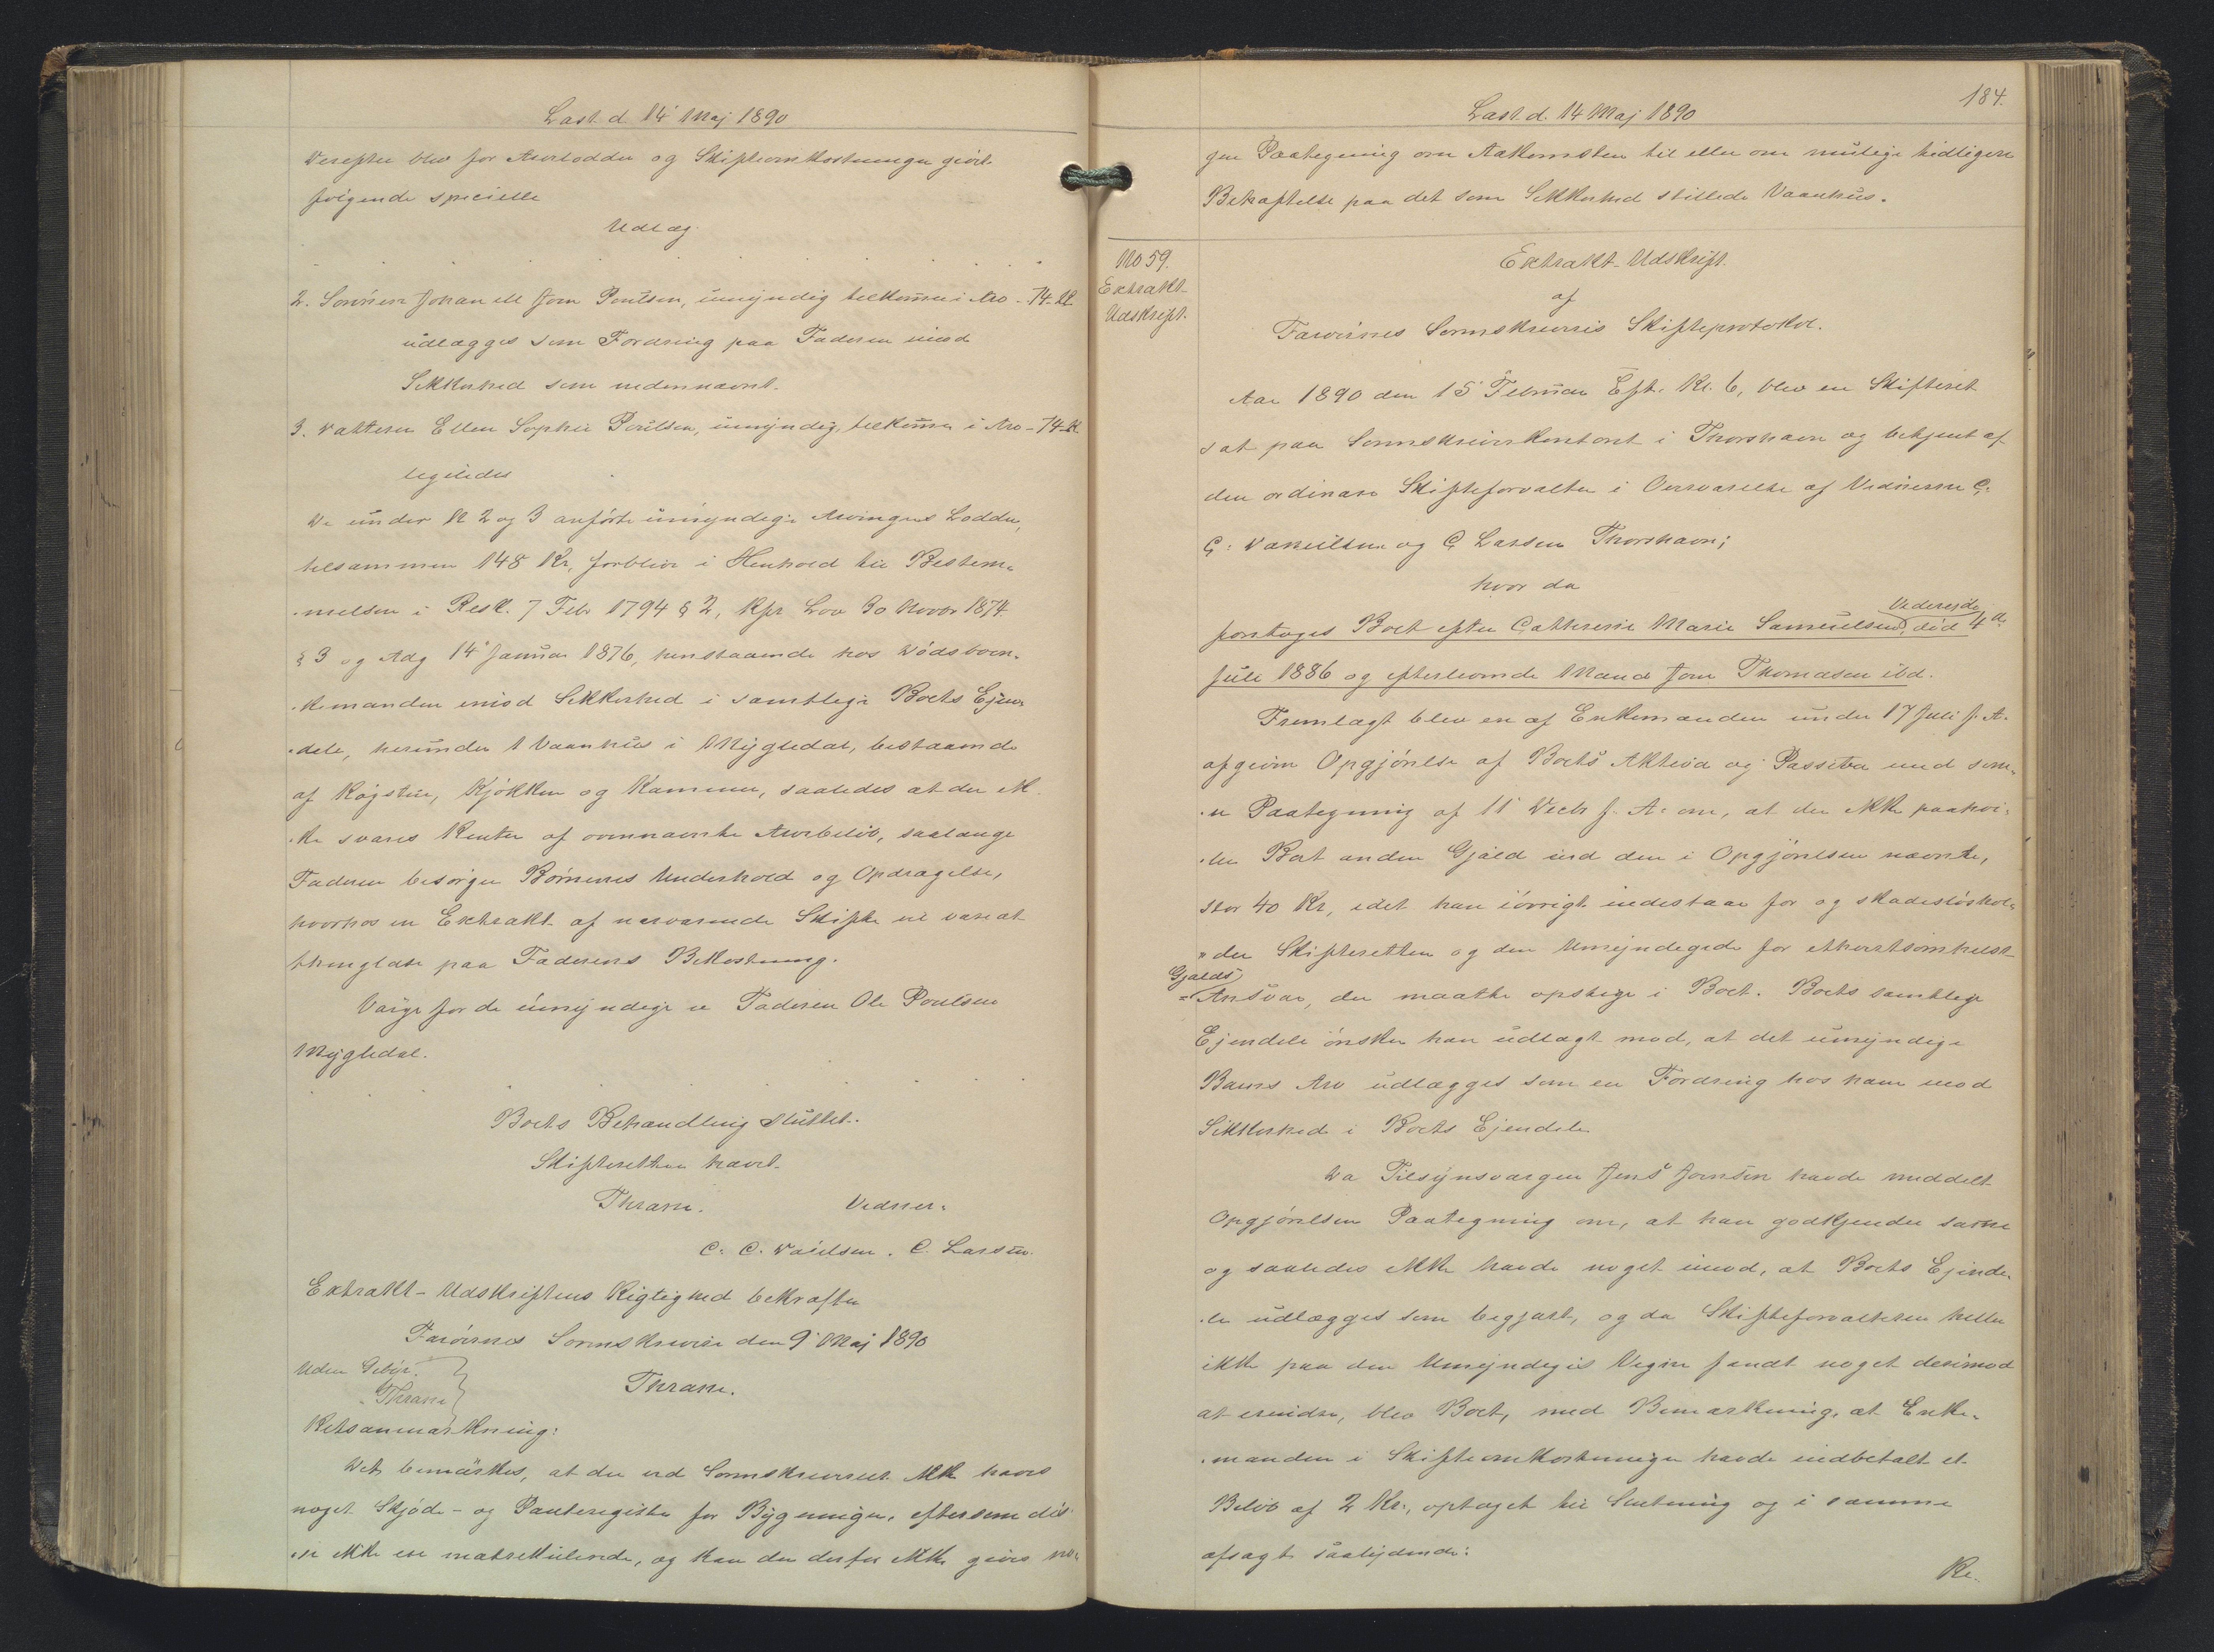 Læst d 14 Maj 1890
Derefter blev for Arvelodder og Skifteomkostninger gjort
følgende specielle
Udlæg.
2. Sønnen Johan El Joen Poulsen, umyndig tilkommer i Arv - 74 Kr
udlægges som Fordring paa Faderen imod
Sikkerhed som nedennævnt.
3. Datteren Ellen Sophie Poulsen, umyndig, tilkommer i Arv - 74 Kr
ligeledes
De under N 2 og 3 anførte umyndige Arvingers Lodder,
tilsammen 148 Kr, forbliver i Henhold til Bestem-
melsen i Resk. 7 Febr 1794 § 2, kfr Lov 30 Novbr 1874
§ 3 og Adg 14 Januar 1876, henstaaende hos Dødsboen-
kemanden imod Sikkerhed i samtlige Boets Ejen-
dele, herunder 1 Vaanhus i Mygledal, bestaaende
af Røgstue, Kjøkken og Kammer, saaledes at der ik-
ke svares Renter af ovennævnte Arvebeløb, saalænge
Faderen besørger Børnenes Underhold og Opdragelse,
hvorhos en Extrakt af nærværende Skifte vil være at
thinglæse paa Faderens Bekostning.
Værge for de umyndige er Faderen Ole Poulsen
Mygledal.
Boets Behandling sluttet.
Skifteretten hævet.
Thrane. Vidner:
C. C. Danielsen. C. Larsen.
Extrakt-Udskriftens Rigtighed bekræfter
Færøernes Sorenskriveri den 9 Maj 1890
Uden Gebyr.
Thrane
Thrane.
Retsanmærkning:
Det bemærkes, at der ved Sorenskriveriet ikke haves
noget Skjøde- og Panteregister for Bygninger, eftersom dis-
se ikke ere matrikulerede, og kan der derfor ikke gives no-
184.
Læst d. 14 Maj 1890
gen Paategning om Adkomsten til eller om mulige tidligere
Behæftelse paa det som Sikkerhed stillede Vaanhus.
No 59.
Extrakt-
Udskrift.
Extrakt-Udskrift
af
Færøernes Sorenskriveris Skifteprotokol.
Aar 1890 den 15 Februar Eft. Kl. 6, blev en Skifteret
sat paa Sorenskriverkontoret i Thorshavn og betjent af
den ordinære Skifteforvalter i Overværelse af Vidnerne C.
C. Danielsen og C Larsen Thorshavn;
hvor da
Viderejde
foretoges Boet efter Cathrine Marie Samuelsen, død 4de
Juli 1886 og efterlevende Mand Joen Thomasen ibd.
Fremlagt blev en af Enkemanden under 17 Juli f. A.
afgiven Opgjørelse af Boets Aktiva og Passiva med sene-
re Paategning af 11 Decbr f. A. om, at der ikke paahvi-
ler Boet anden Gjæld end den i Opgjørelsen nævnte,
stor 40 Kr, idet han iøvrigt indestaar for og skadesløshol-
der Skifteretten og den Umyndige for ethvertsomhelst
Gjælds
Ansvar, der maatte opstige i Boet. Boets samtlige
Ejendele ønsker han udlagt mod, at det umyndige
Barns Arv udlægges som en Fordring hos ham mod
Sikkerhed i Boets Ejendele
Da Tilsynsværgen Jens Joensen havde meddelt
Opgjørelsen Paategning om, at han godkjender samme
og saaledes ikke havde noget imod, at Boets Ejende-
le udlægges som begjært, og da Skifteforvalteren heller
ikke paa den Umyndiges Vegne fandt noget derimod
at erindre, blev Boet, med Bemærkning, at Enke-
manden i Skifteomkostninger havde indbetalt et
Beløb af 2 Kr., optaget til Slutning og i samme
afsagt saalydende:
Re-